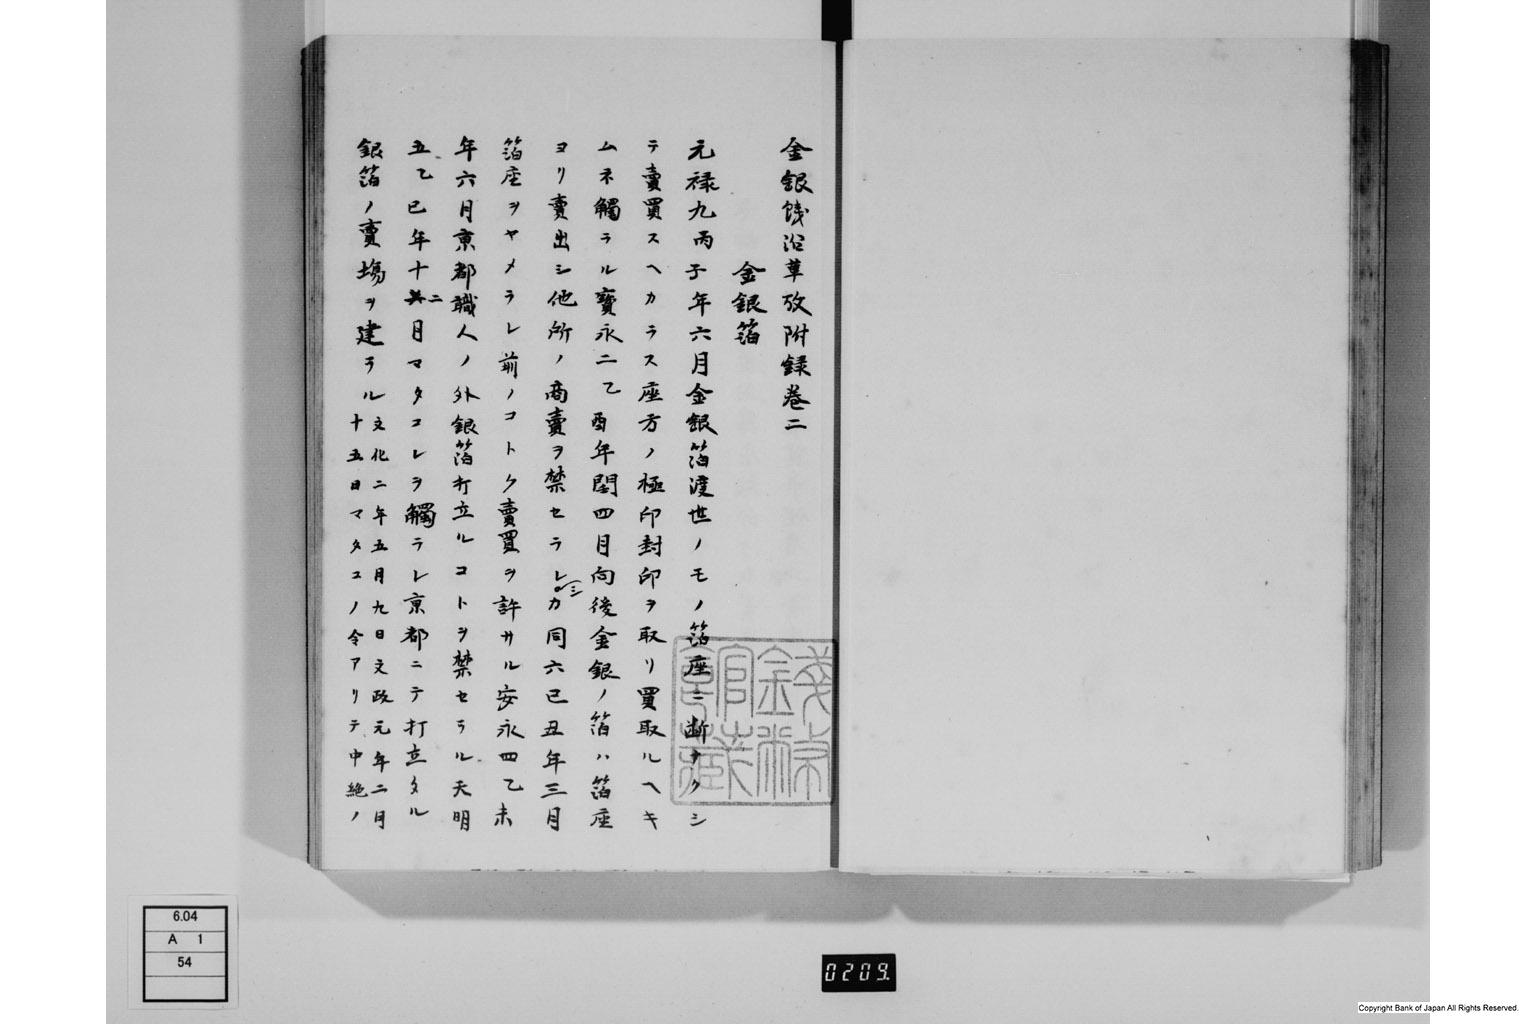 金銀銭沿革攷附録巻二
金銀箔
元禄九丙子年六月金銀箔渡世ノモノ箔座ニ断ナクシ
テ賣買スヘカラス座方ノ極印封印ヲ取リ買取ルヘキ
ムネ觸ラル寶永二乙酉年閏四月向後金銀ノ箔ハ箔座
ヨリ賣出シ他所ノ商賣ヲ禁セラレシカ同六己丑年三月
箔座ヲヤメラレ前ノコトク賣買ヲ許サル安永四乙未
年六月京都職人ノ外銀箔打立ルコトヲ禁セラル天明
五乙巳年十二月マタコレラ觸ラレ京都ニテ打立タル
銀箔ノ賣場ヲ建ラル
文化二年五月九日文政元年二月
十五日マタコノ令アリテ中絶ノ
錢幣館古金銀藏
6.04
A 1
54
0209.
Copyright Bank of Japan All Rights Reserved.